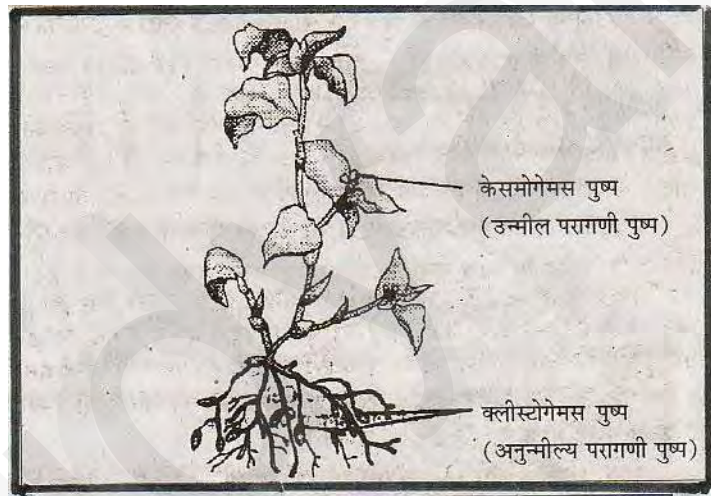 केसमोगेमस पुष्प
(उन्मील परागणी पुष्प)
क्लीस्टोगेमस पुष्प
(अनुन्मील्य परागणी पुष्प)